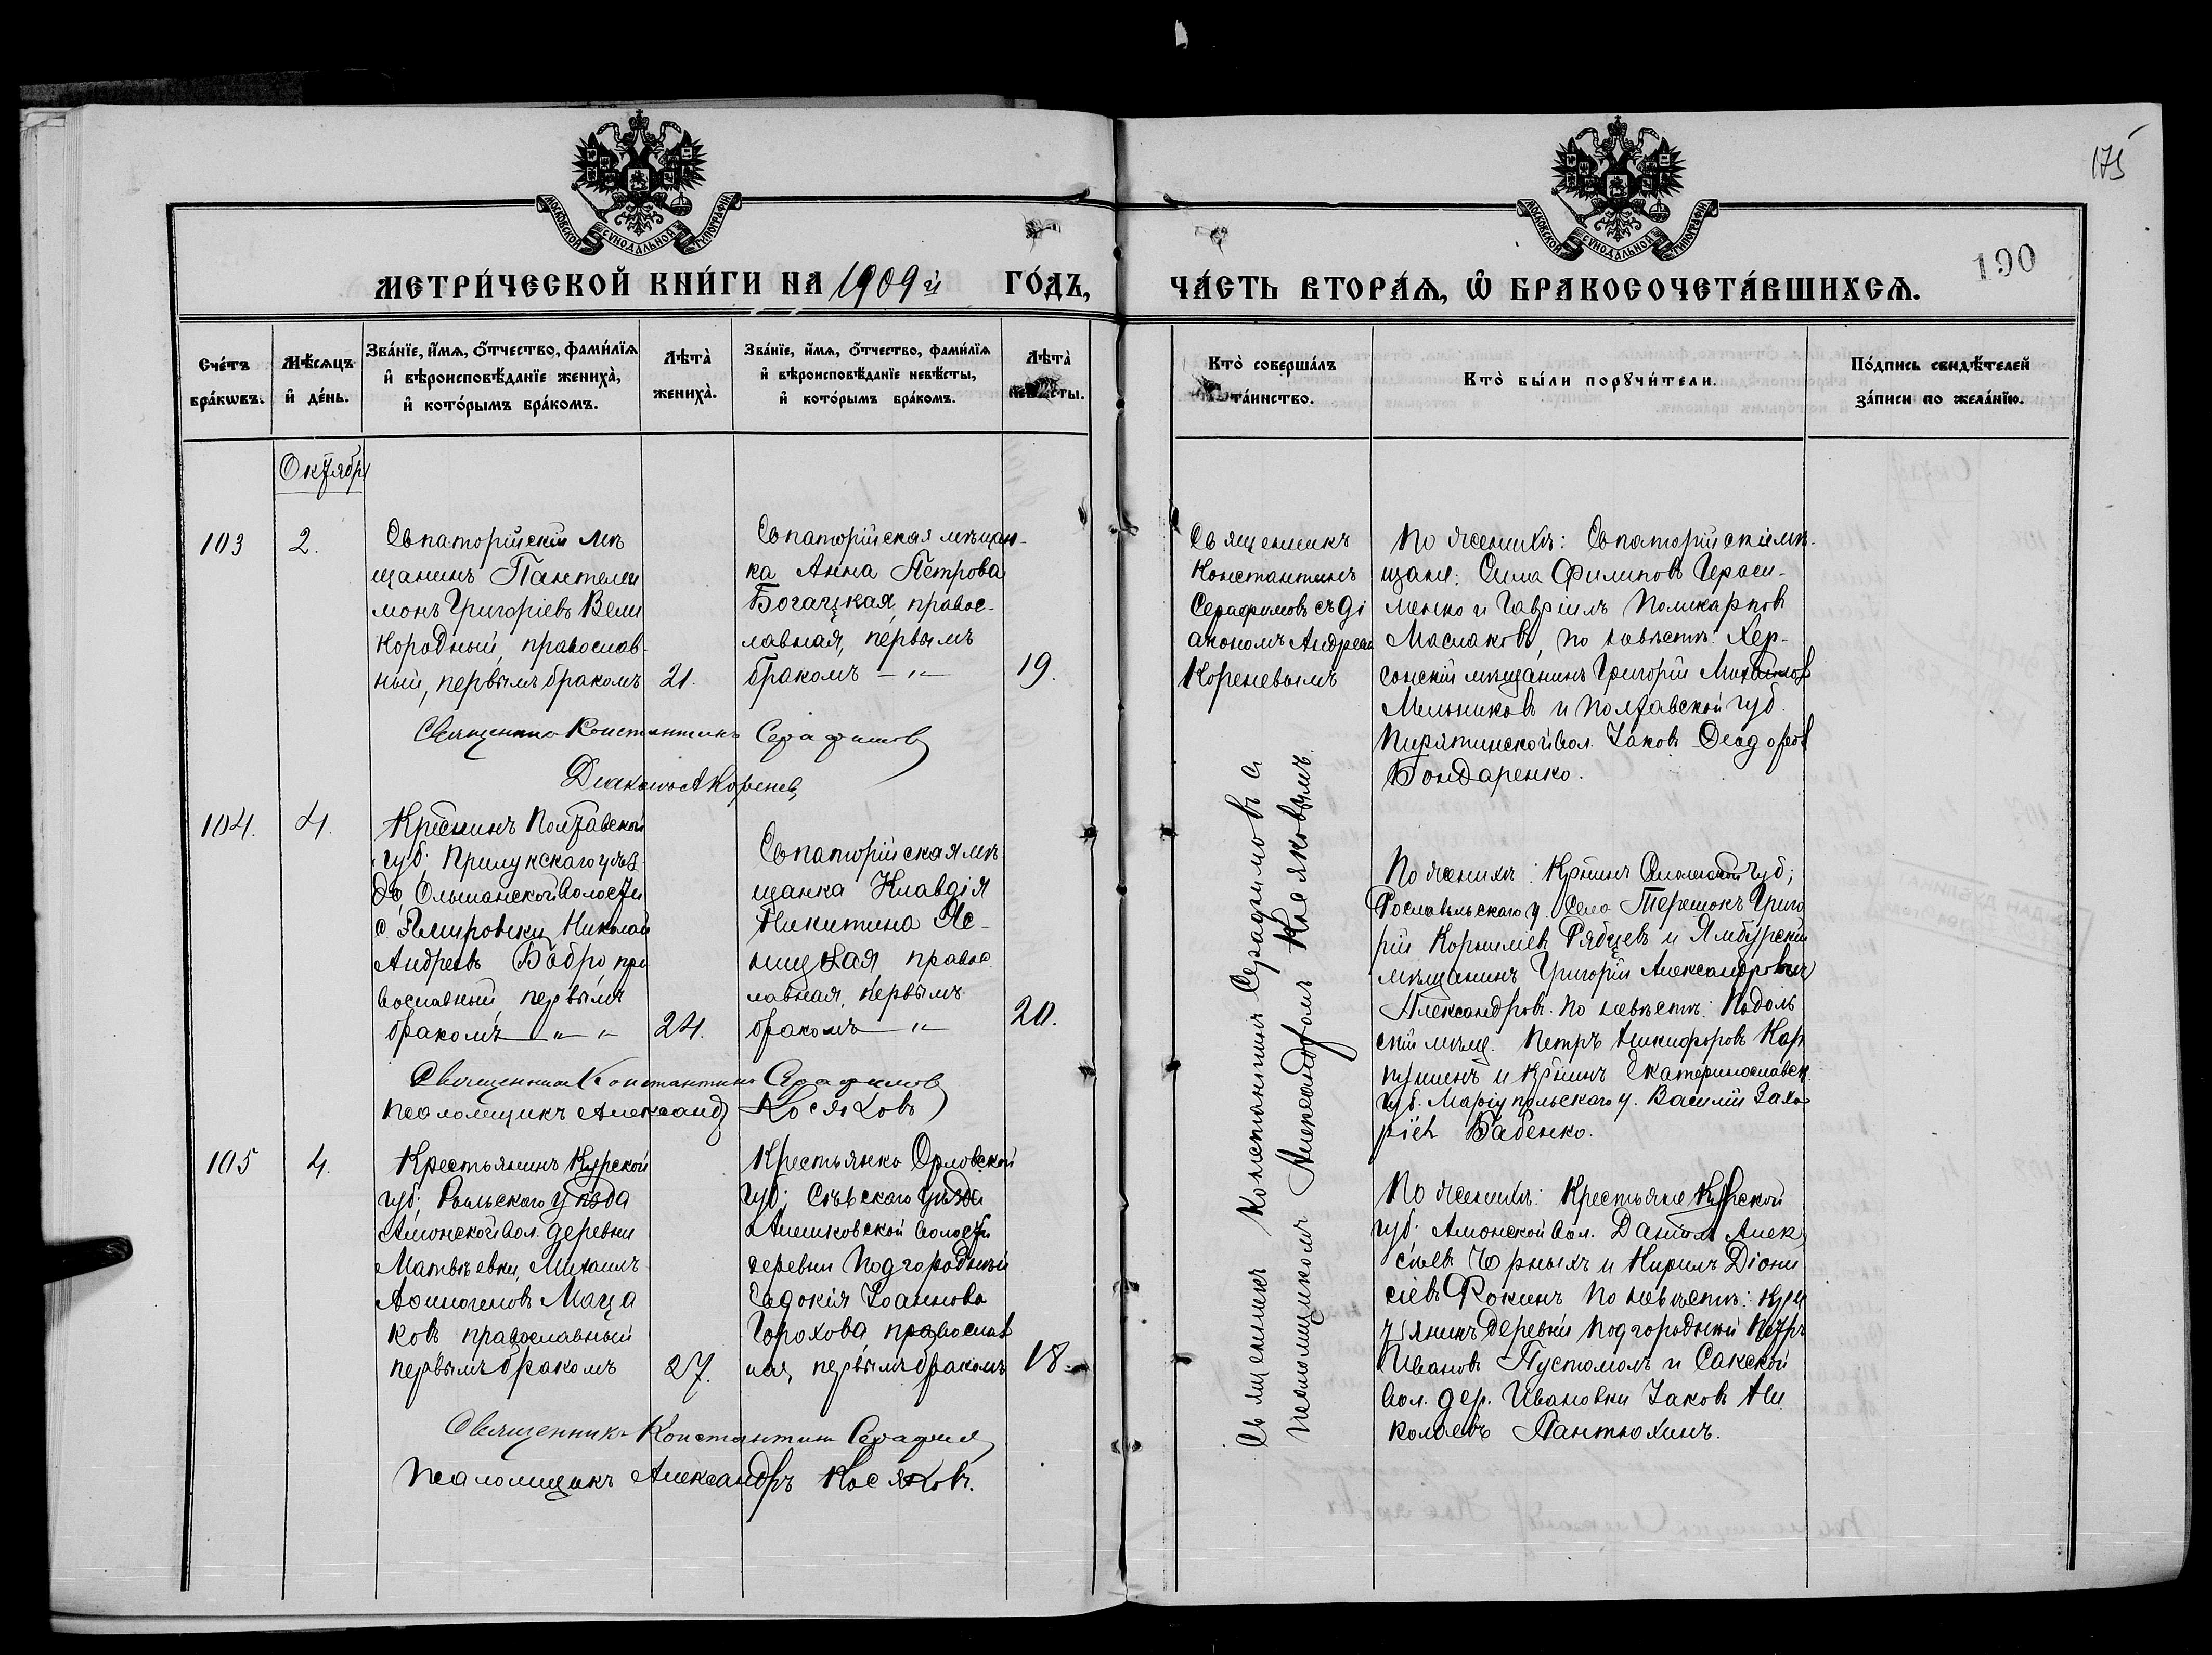 175
190
МОСКОВСКОЙ СѴНОДАЛЬНОЙ ТИПОГРАФІИ
МОСКОВСКОЙ СѴНОДАЛЬНОЙ ТИПОГРАФІИ
МЕТРИ́ЧЕСКОЙ КНИ́ГИ НА 1909й ГО́ДЪ,
ЧА́СТЬ ВТОРА́Ѧ, Ѽ БРАКОСОЧЕТА́ВШИХСѦ.
Сче́тъ бра́кѡвъ.
Мѣ́сѧцъ и҆ де́нь.
Зва́нїе, и҆́мѧ, ѻ҆́тчество, фами́лїѧ и҆ вѣроисповѣ́данїе жениха̀, и҆ кото́рымъ бра́комъ.
Лѣта̀ жениха̀.
Зва́нїе, и҆́мѧ, ѻ҆́тчество, фами́лїѧ и҆ вѣроисповѣ́данїе невѣ́сты, и҆ кото́рымъ бра́комъ.
Лѣта̀ невѣ́сты.
Кто̀ соверша́лъ та́инство.
Кто̀ бы́ли порꙋчи́тели.
По́дпись свидѣ́телей за́писи по жела́нїю.
Октябрь
103
2.
Евпаторійскій мѣ
щанинъ Пантелеи
монъ Григоріевъ Вели
кородный, православ-
ный, первымъ бракомъ
21.
Евпаторійская мѣщан-
ка Анна Петрова
Богацкая, правос-
лавная, первымъ
бракомъ — " —
19.
Священникъ
Константинъ
Серафимовъ съ ді
акономъ Андреем
Кореневымъ
По женихѣ: Евпаторійскіе мѣ-
щане: Сила Филиповъ Гераси-
менко и Гавріилъ Поликарпов
Маслаковъ, по невѣстѣ: Хер-
сонскій мѣщанинъ Григорій Михайлов
Мельниковъ и Полтавской губ.
Пирятинской вол. Іаковъ Феодотов
Бондаренко.
Священникъ Константинъ Серафимовъ
Діаконъ А Коренев
104.
4.
Кр͠инъ Полтавской
губ. Прилукскаго уѣз-
да, Ольшанской волости
с. Николай
Андреевъ Бобро пра
вославный, первымъ
бракомъ — " —
24.
Евпаторійская мѣ
щанка Клавдія
Никитина Яс-
ницкая, правос
лавная, первымъ
бракомъ — " —
20.
По женихѣ: Кр͠инъ Смоленской губ;
Рославльскаго у. Села Терешокъ Григо
рій Корниліев Рябцевъ и Ямбургскій
мѣщанинъ Григорій Александрович
Александровъ. По невѣстѣ: Подоль
скій мѣщ. Петръ Никифоровъ Кар
пушинъ и кр͠инъ Екатеринославск.
губ. Маріупольскаго у. Василій Заха
ріев Бабенко.
Священникъ Константинъ Серафимов
Псаломщикъ Александръ Косяковъ
105
4.
Крестьянинъ Курской
губ; Рыльскаго уѣзда
Амонской вол. деревни
Матвѣевки, Михаилъ
Афиногеновъ Маца
ковъ православный
первымъ бракомъ
27.
Крестьянка Орловской
губ; Сѣвскаго уѣзда
Алешковской волости
деревни Подгородныи
Евдокія Іоаннова
Горохова, православ
ная, первымъ бракомъ
18.
По женихѣ: Крестьяне Курской
губ. Амонской вол. Даніилъ Алек
сѣевъ Чорныхъ и Кирилъ Діони
сіевъ Фокинъ по невѣстѣ: Крес
тьянинъ деревни Подгородный Петръ
Ивановъ Пустомолъ и Сакской
вол. дер. Ивановки Іаковъ Ни
колаевъ Пантюхинъ.
Священникъ Константинъ Серафимовъ съ
псаломщикомъ Александромъ Косяковымъ.
Священникъ Константинъ Серафимов
Псаломщикъ Александръ Косяковъ.